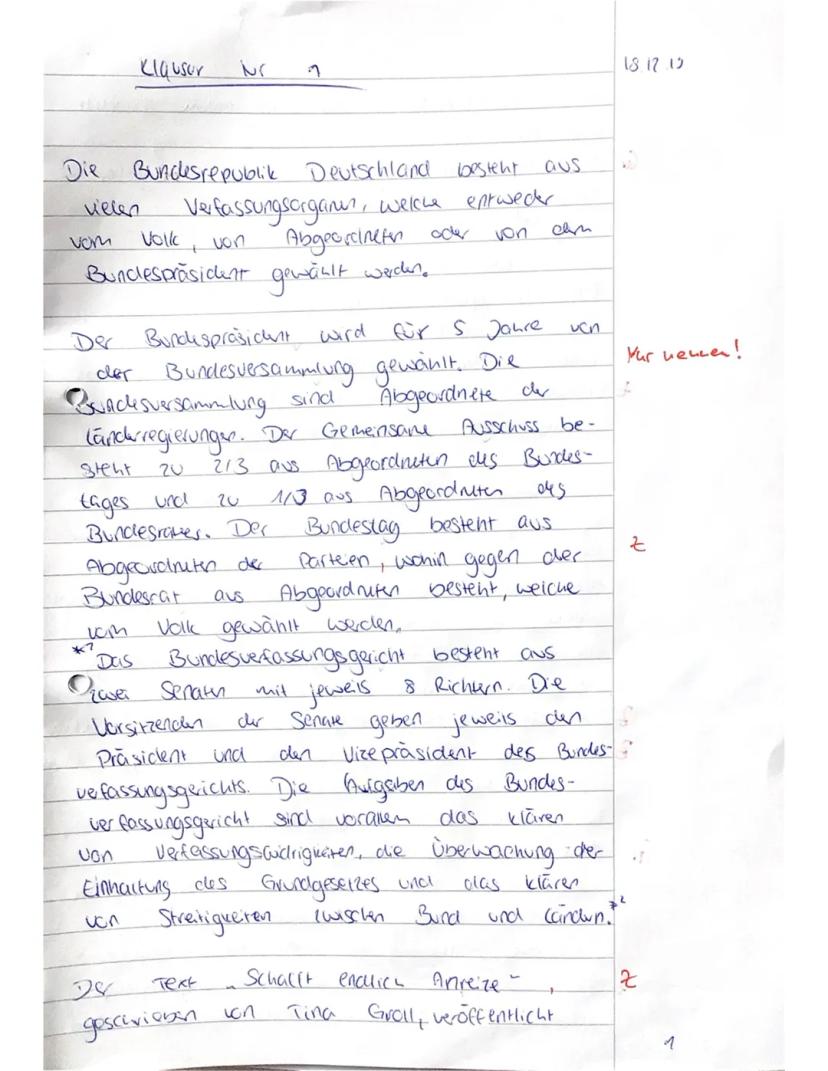 Klausur Nr 1
18.12.19
Die Bundesrepublik Deutschland besteht aus
vielen Verfassungsorganen, welche entweder
vom Volk, von Abgeordneten oder von dem
Bundespräsident gewählt werden.
Der Bundespräsident wird für 5 Jahre von
Nur nennen!
der Bundesversammlung gewählt. Die
Bundesversammlung sind Abgeordnete der
Länderregierungen. Der Gemeinsame Ausschuss be-
steht zu 2/3 aus Abgeordneten des Bundes-
tages und zu 1/3 aus Abgeordneten des
Bundesrates. Der Bundestag besteht aus
Z
Abgeordneten der Parteien, wohin gegen der
Bundesrat aus Abgeordneten besteht, welche
vom Volk gewählt werden.
*1
Das Bundesverfassungsgericht besteht aus
zwei Senaten mit jeweils 8 Richtern. Die
Vorsitzenden der Senate geben jeweils den
Präsident und den Vizepräsident des Bundes-
verfassungsgerichts. Die Aufgaben des Bundes-
verfassungsgericht sind vorallem das klären
von Verfassungswidrigkeiten, die Überwachung der
Einhaltung des Grundgesetzes und das klären
von Streitigkeiten zwischen Bund und Ländern.*2
Der Text "Schafft endlich Anreize",
Z
geschrieben von Tina Groll, veröffentlicht
1